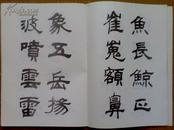 魚長鯨正
崔嵬額鼻
象五岳揚
波噴雲雷